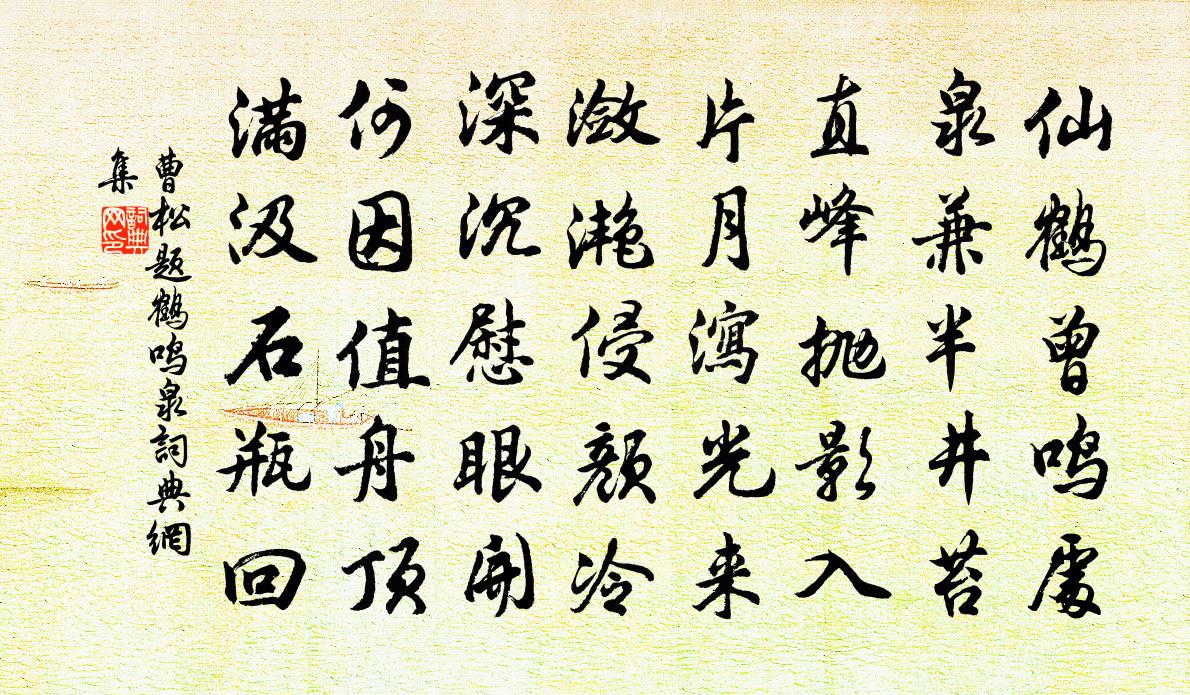 仙鹤曾鸣處
泉兼半井苔
直峰抛影入
片月瀉光来
潋滟侵颜冷
深沉慰眼開
何因值舟顶
满汲石瓶回
曹松题鹤鸣泉詞典網
集
詞典
网印